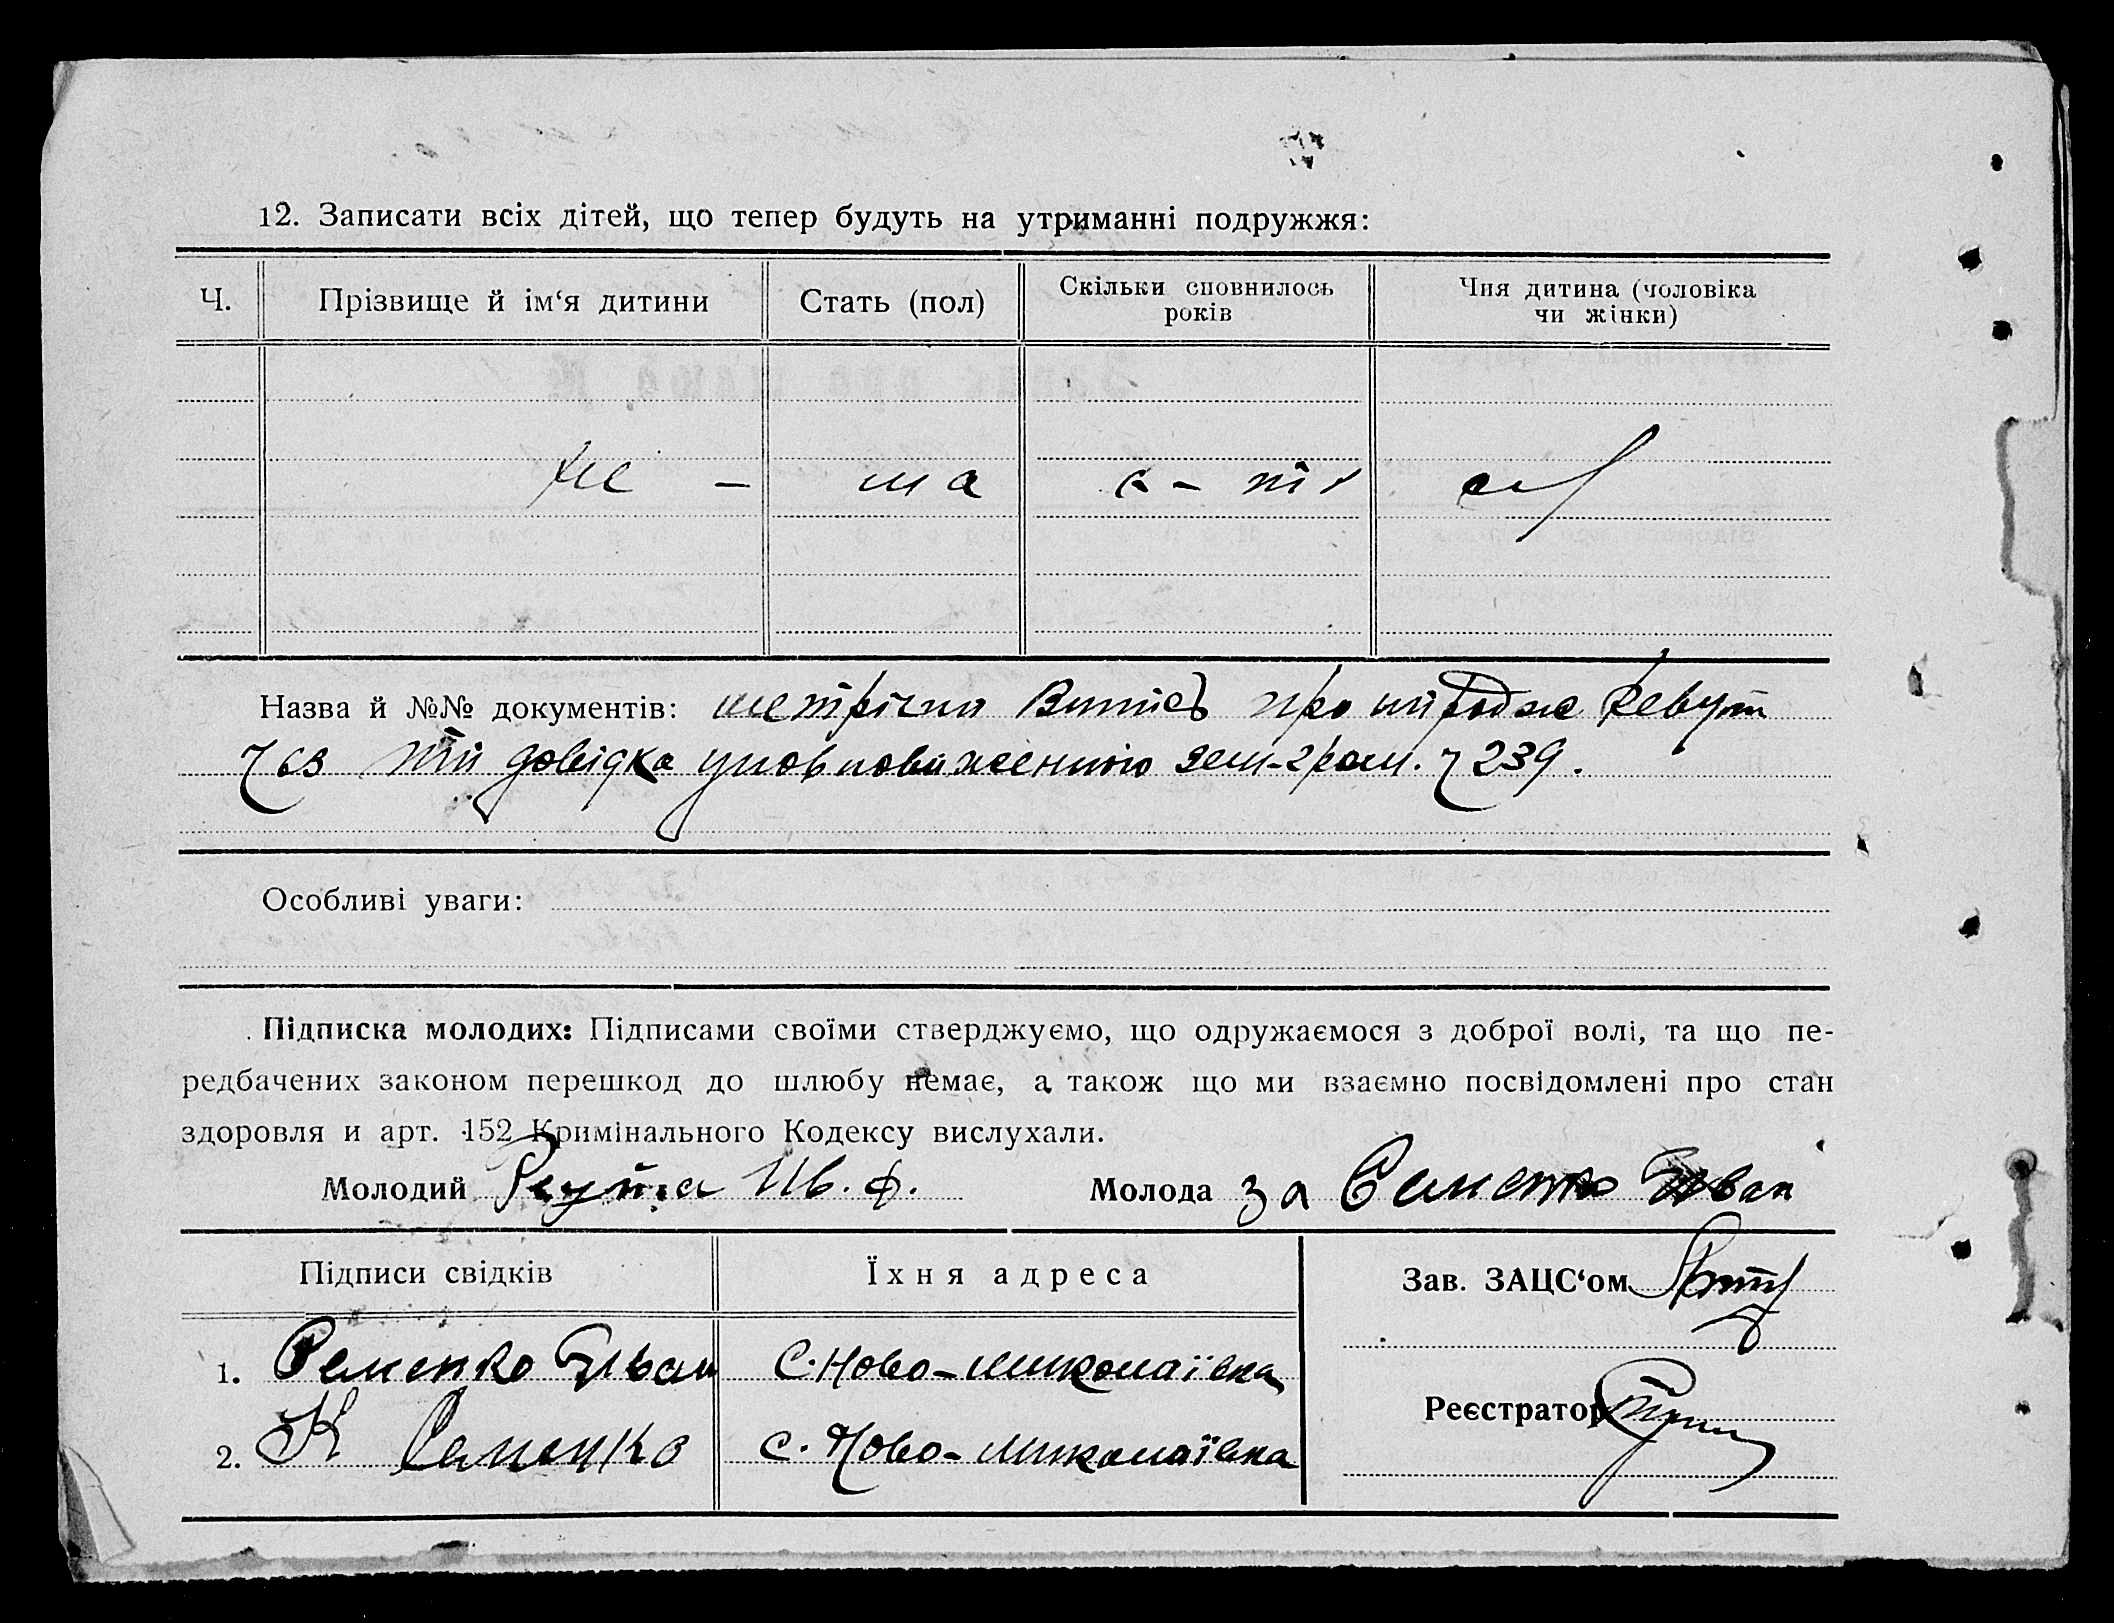 12. Записати всіх дітей, що тепер будуть на утриманні подружжя:
Ч. Прізвище й ім‘я дитини Стать (пол) Скільки сповнилось років Чия дитина (чоловіка чи жінки)
не - ма
Назва й №№ документів: метрічни Витісь про народже
довідка уповноваженного зем-гром. 239.
Особливі уваги:
Підписка молодих: Підписами своїми стверджуємо, що одружаємося з доброї волі, та що пе-
редбачених законом перешкод до шлюбу немає, а також що ми взаємно посвідомлені про стан
здоровля и арт. 152 Кримінального Кодексу вислухали.
Молодий Ив. Ф. Молода за Семенко Иван
Підписи свідків Їхня адреса Зав. ЗАЦС‘ом
1. Семенко Иван С. Ново-миколаївка
Реєстратор
2. К Семенко с. Ново-миколаївка